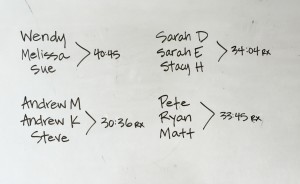 Wendy
Melissa 40:45
Sue
Sarah D
Sarah E 34:04 RX
Stacy H
Andrew M
Andrew K 30:36 RX
Steve
Pete
Ryan 33:45 RX
Matt